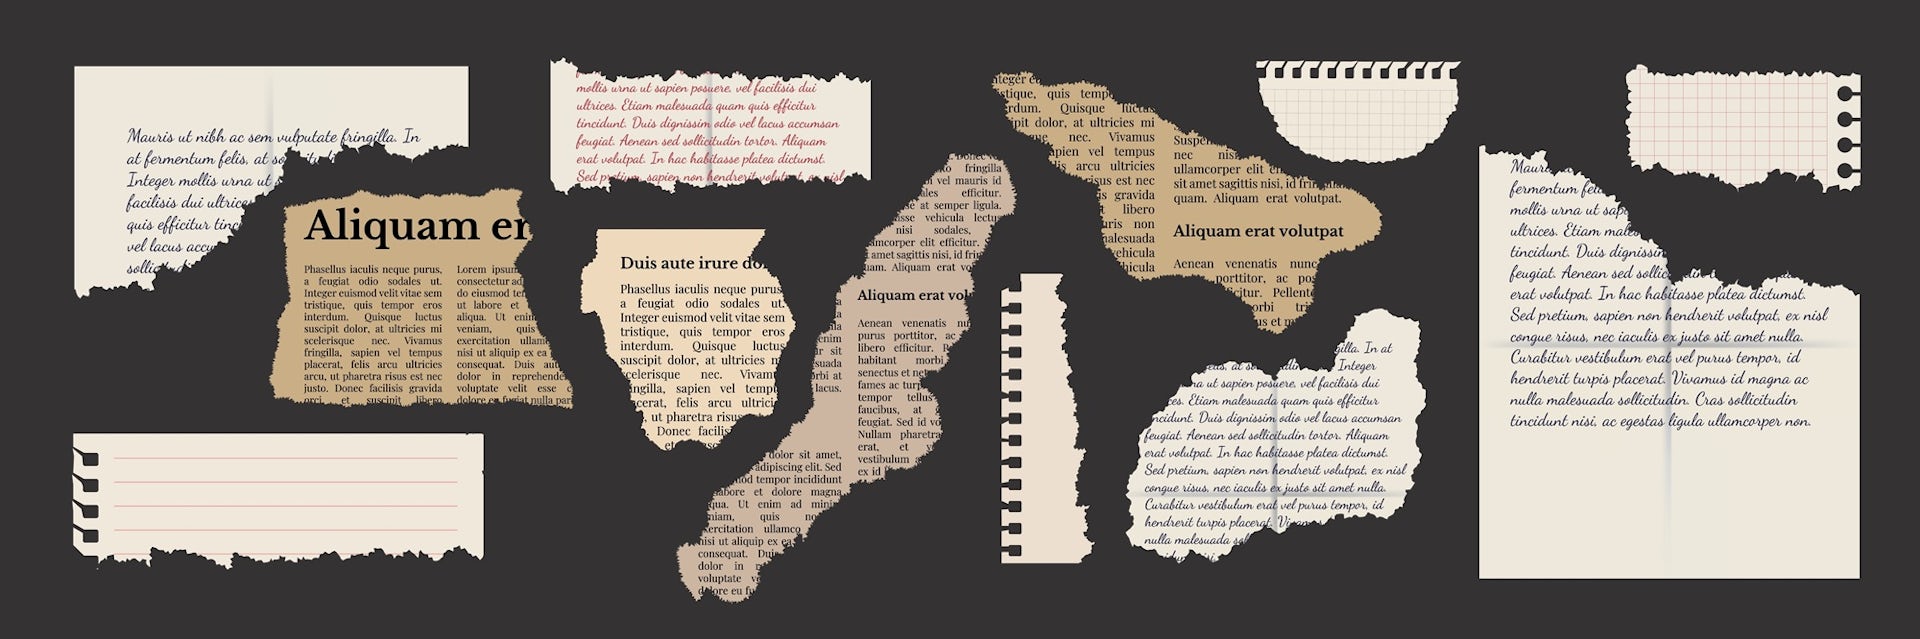 Mauris ut nibh ac sem vulputate fringilla. In
at fermentum felis, at
Integer mollis urna ut
facilisis dui ultrices
quis efficitur tincidunt
vel lacus
Aliquam
Phasellus iaculis neque purus,
a feugiat odio sodales ut.
Integer euismod velit vitae sem
tristique, quis tempor eros
interdum. Quisque luctus
suscipit dolor, at ultricies mi
scelerisque nec. Vivamus
fringilla, sapien vel tempus
placerat, felis arcu ultricies
arcu, ut pharetra risus est nec
justo. Donec facilisis gravida
orci et suscipit libero
Lorem ipsum
consectetur
do eiusmod
ut labore et
aliqua. Ut enim
veniam, quis
exercitation
nisi ut aliquip ex ea
consequat. Duis
dolor in
voluptate velit esse
dolore eu fugiat nulla
mollis urna ut sapien posuere, vel facilisis dui
ultrices. Etiam malesuada quam quis efficitur
tincidunt. Duis dignissim odio vel lacus accumsan
feugiat. Aenean sed sollicitudin tortor. Aliquam
erat volutpat. In hac habitasse platea dictumst.
Sed pretium, sapien non hendrerit volutpat, ex nisl
Duis aute irure
Phasellus iaculis neque purus,
a feugiat odio sodales ut.
Integer euismod velit vitae sem
tristique, quis tempor eros
interdum. Quisque luctus
suscipit dolor, at ultricies
scelerisque nec. Vivamus
fringilla, sapien vel
placerat, felis arcu
ut pharetra risus
Donec
et
Donec
fringilla
vel mauris id
efficitur.
at semper ligula.
vehicula lectus
nisi sodales,
elit efficitur.
sit amet sagittis nisi, id
Aliquam erat
Aliquam erat
Aenean venenatis
purus porttitor, ac
libero efficitur.
habitant morbi
senectus et
fames ac
tempor tellus
faucibus, at
feugiat. Sed id
Nullam pharetra
erat, et
vestibulum
ex id
sit
at
lacus.
dolor sit amet,
adipiscing elit. Sed
tempor incididunt
labore et dolore magna
Ut enim ad minim
quis
exercitation ullamco
nisi ut aliquip ex ea
consequat. Duis
dolor in
voluptate
dolore eu
quis tempor
Quisque luctus
dolor, at ultricies mi
nec. Vivamus
sapien vel tempus
felis arcu ultricies
risus est nec
gravida
libero
non
malesuada
vehicula
nec
ullamcorper elit efficitur.
sit amet sagittis nisi, id
quam. Aliquam erat volutpat.
Aliquam erat volutpat
Aenean venenatis nunc
porttitor, ac
Pellentesque
morbi
et
fringilla. In at
Integer
urna ut sapien posuere, vel facilisis dui
ultrices. Etiam malesuada quam quis efficitur
tincidunt. Duis dignissim odio vel lacus accumsan
feugiat. Aenean sed sollicitudin tortor. Aliquam
erat volutpat. In hac habitasse platea dictumst.
Sed pretium, sapien non hendrerit volutpat, ex nisl
congue risus, nec iaculis ex justo sit amet nulla.
Curabitur vestibulum erat vel purus tempor, id
hendrerit turpis placerat.
nulla malesuada
Mauris
fermentum
mollis urna ut
ultrices. Etiam
tincidunt. Duis dignissim
feugiat. Aenean sed
erat volutpat. In hac habitasse platea dictumst.
Sed pretium, sapien non hendrerit volutpat, ex nisl
congue risus, nec iaculis ex justo sit amet nulla.
Curabitur vestibulum erat vel purus tempor, id
hendrerit turpis placerat. Vivamus id magna ac
nulla malesuada sollicitudin. Cras sollicitudin
tincidunt nisi, ac egestas ligula ullamcorper non.